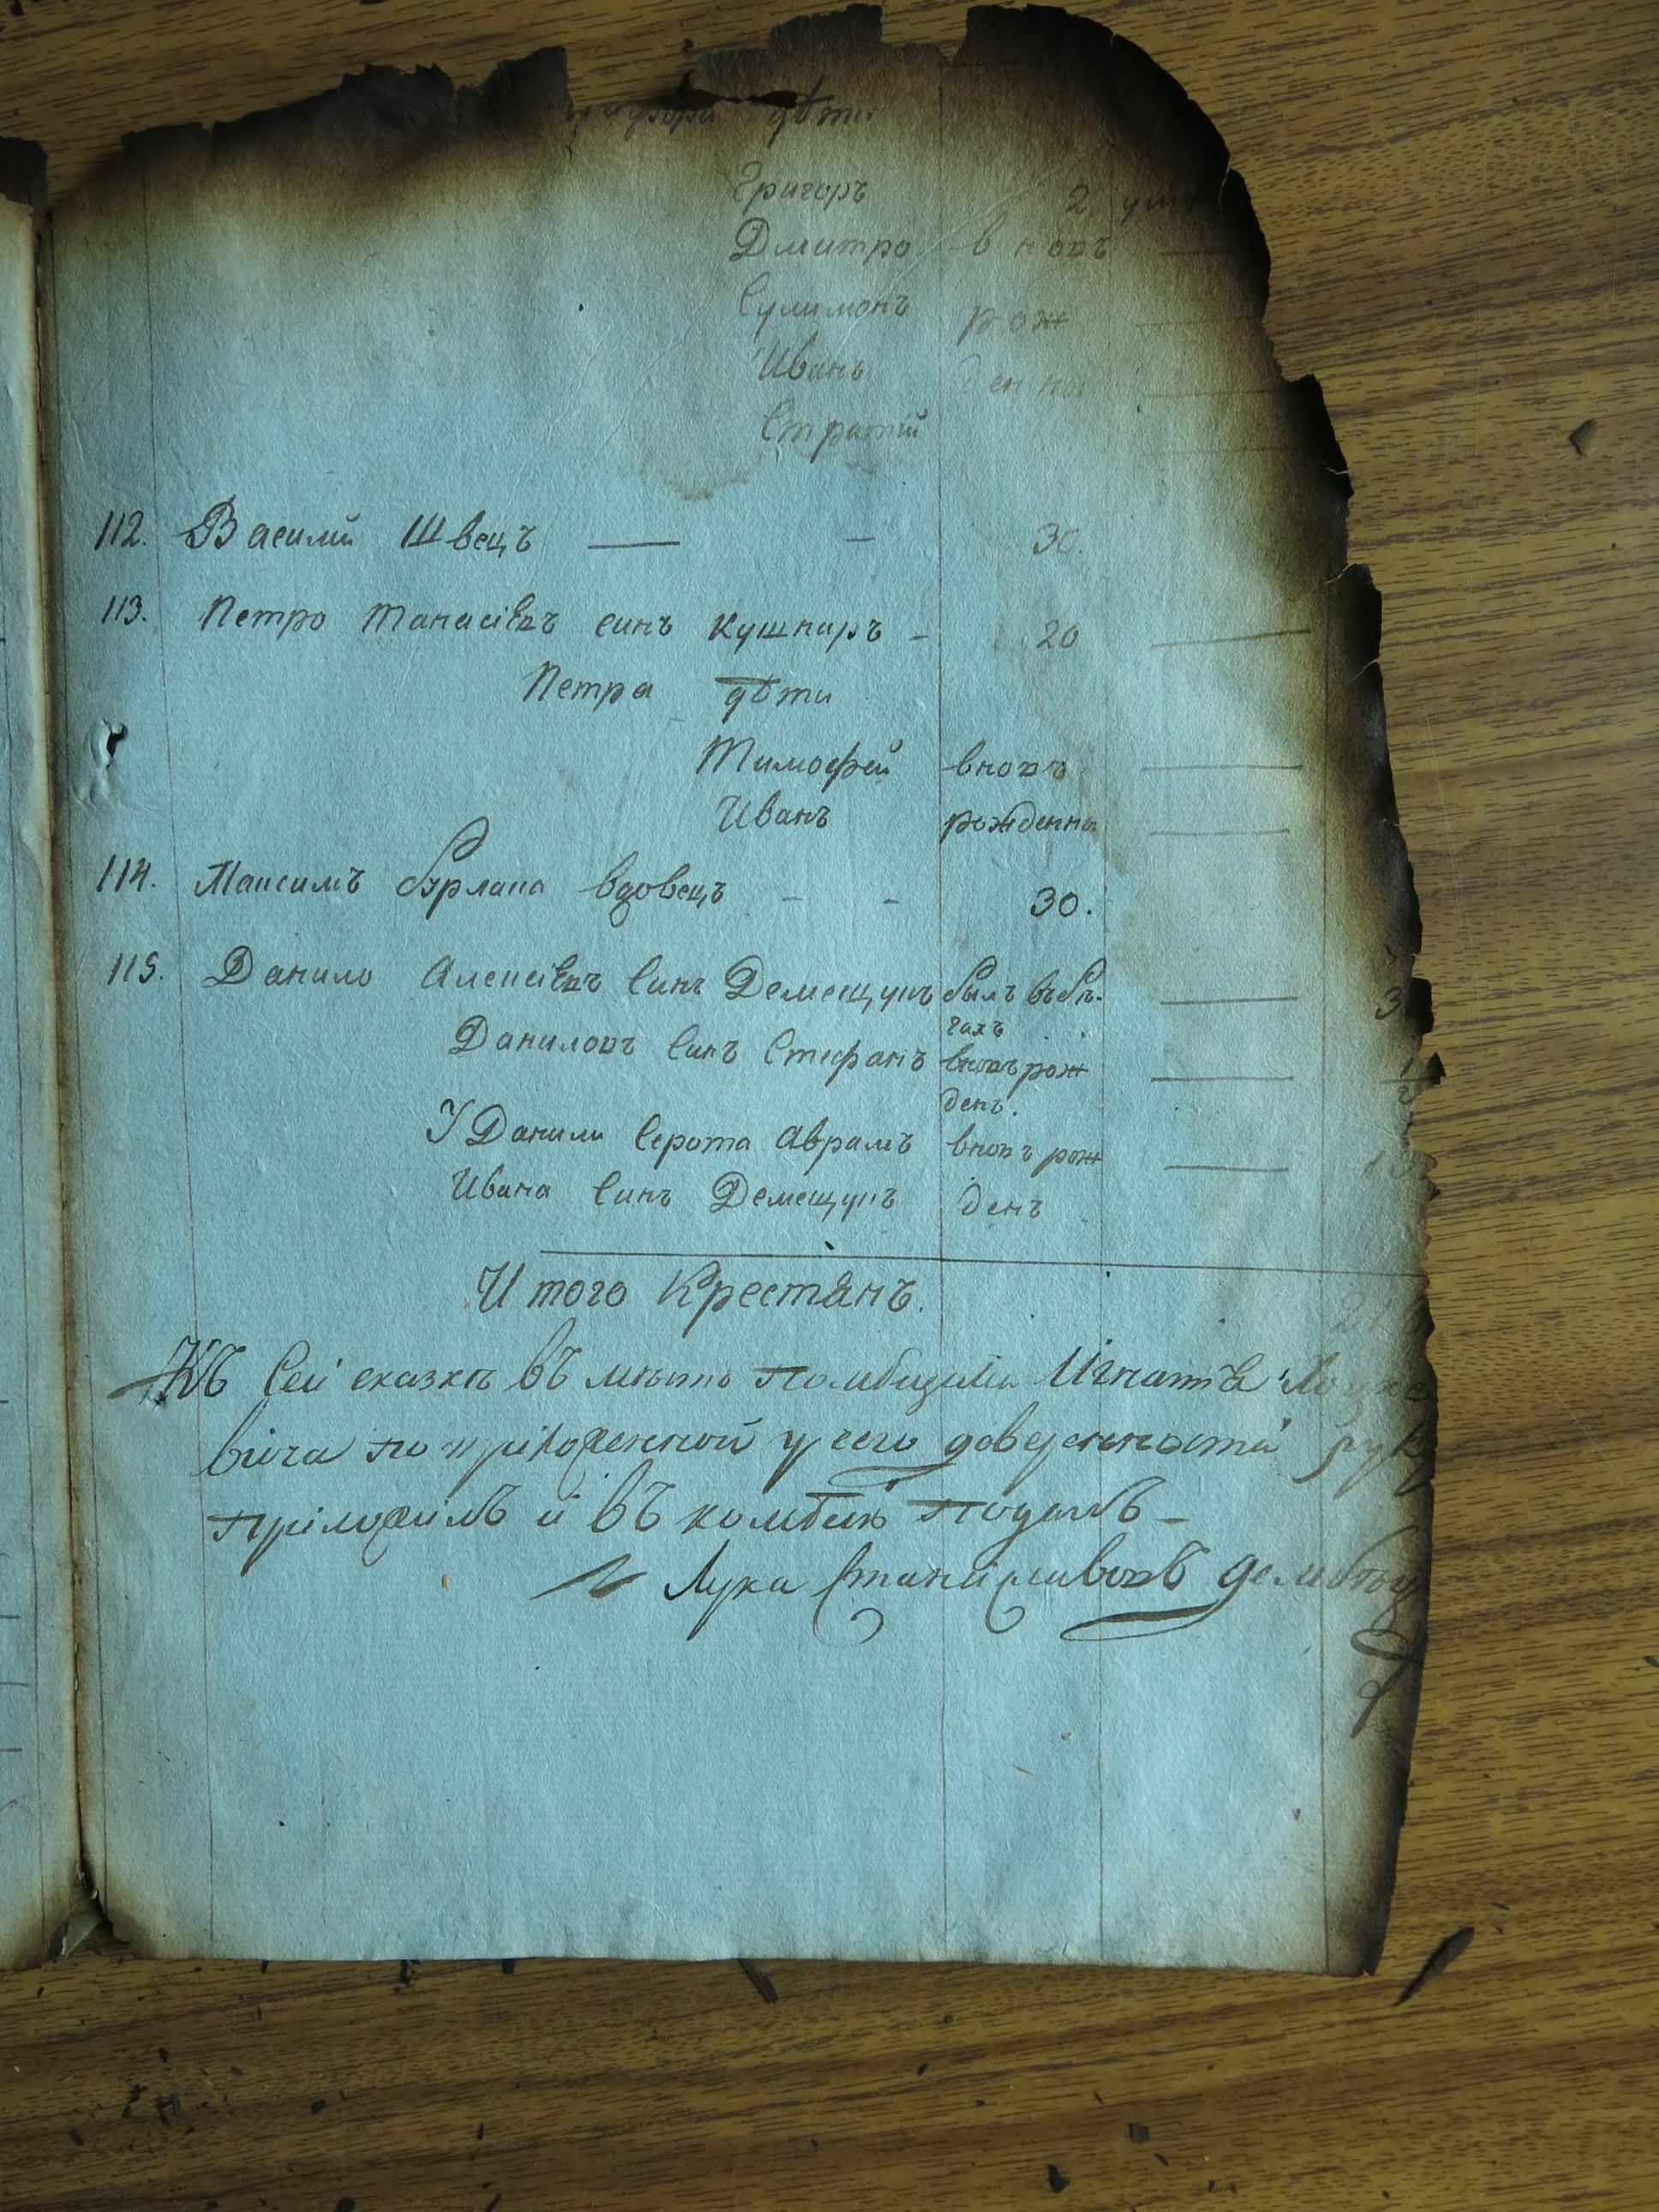 дѣти
Григоръ 2 ум
Дмитро вновъ
Сулимонъ рож
Иванъ денны
Стратій
112. Василий Швецъ 30.
113. Петро Танасіевъ синъ Кушниръ 20
Петра дѣти
Тимофей вновъ
Иванъ рожденны
114. Максимъ Бурлака вдовецъ 30.
115. Данило Алексіевъ Синъ Демещукъ былъ въ бѣ-
гахъ
Даниловъ Синъ Стефанъ вновъ рож
денъ.
У Данили Серота Аврамъ вновъ рож
Ивана Синъ Демещукъ денъ
Итого Крестянъ.
Къ Сей сказкѣ въ мѣсто Помѣщика Игнатія
вича по приложенной у сего доверенности рук
приложилъ и въ Подалъ
Лука Станиславовъ